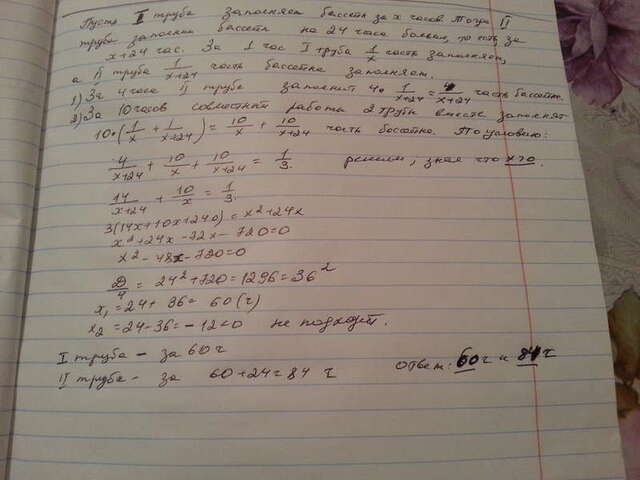 Пусть I труба заполняет бассейн за x часов. Тогда II
труба заполнит бассейн на 24 часа больше, то есть за
x+24 час. За 1 час I труба 1/x часть заполняет,
а II труба 1/x+24 часть бассейна заполняет.
1) За 4 часа II труба заполнит 4· 1/x+24 = 4/x+24 часть бассейна.
2) За 10 часов совместной работы 2 трубы вместе заполнят
10·(1/x + 1/x+24) = 10/x + 10/x+24 часть бассейна. По условию:
4/x+24 + 10/x + 10/x+24 = 1/3. решим, зная что x>0.
14/x+24 + 10/x = 1/3.
3(14x+10x+240) = x²+24x
x²+24x-72x-720=0
x²-48x-720=0
D/4 = 24²+720=1296=36²
x₁=24+36=60(ч)
x₂=24-36=-12<0 не подходит.
I труба - за 60ч
II труба - за 60+24=84 ч Ответ: 60ч и 84ч